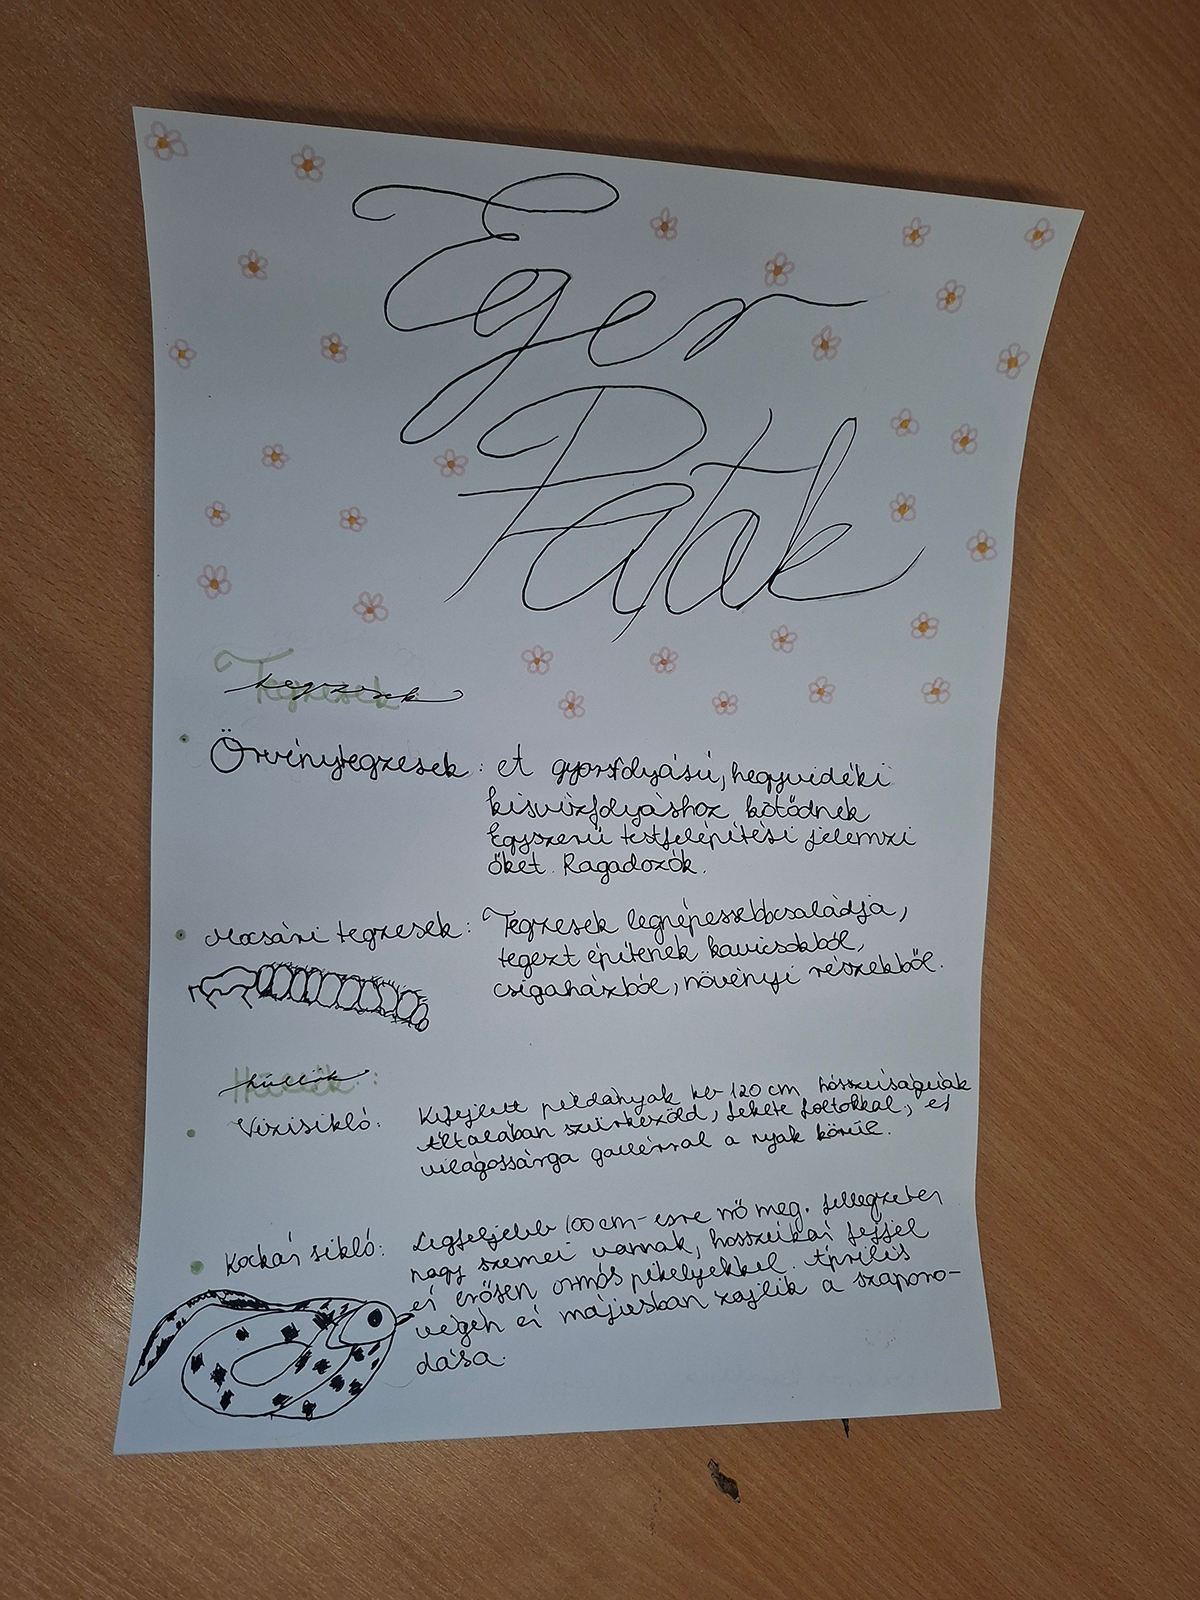 Eger
Patak
Tegzesek
Örvénytegzesek: et gyorsfolyású, hegyvidéki
kisvízfolyáshoz kötődnek
Egyszerű testfelépítési jelemzi
őket. Ragadozók.
Mocsári tegzesek: Tegzesek legnépessebbcsaládja,
tegezt építenek kavicsokból,
csigaházból, növényi részekből.
Hüllők:
Vízisikló: Kifejlett példányak kb 120 cm hosszúságúak
Általában szürkezöld, fekete foltokkal, és
világossárga gallérral a nyak körül.
Kockás sikló: Legfeljebb 100 cm-esre nő meg. Jellegzetes
nagy szemei vannak, hosszúkás fejjel
és erősen ormós pikelyekkel. Április
végén és májusban zajlik a szaporo-
dása.